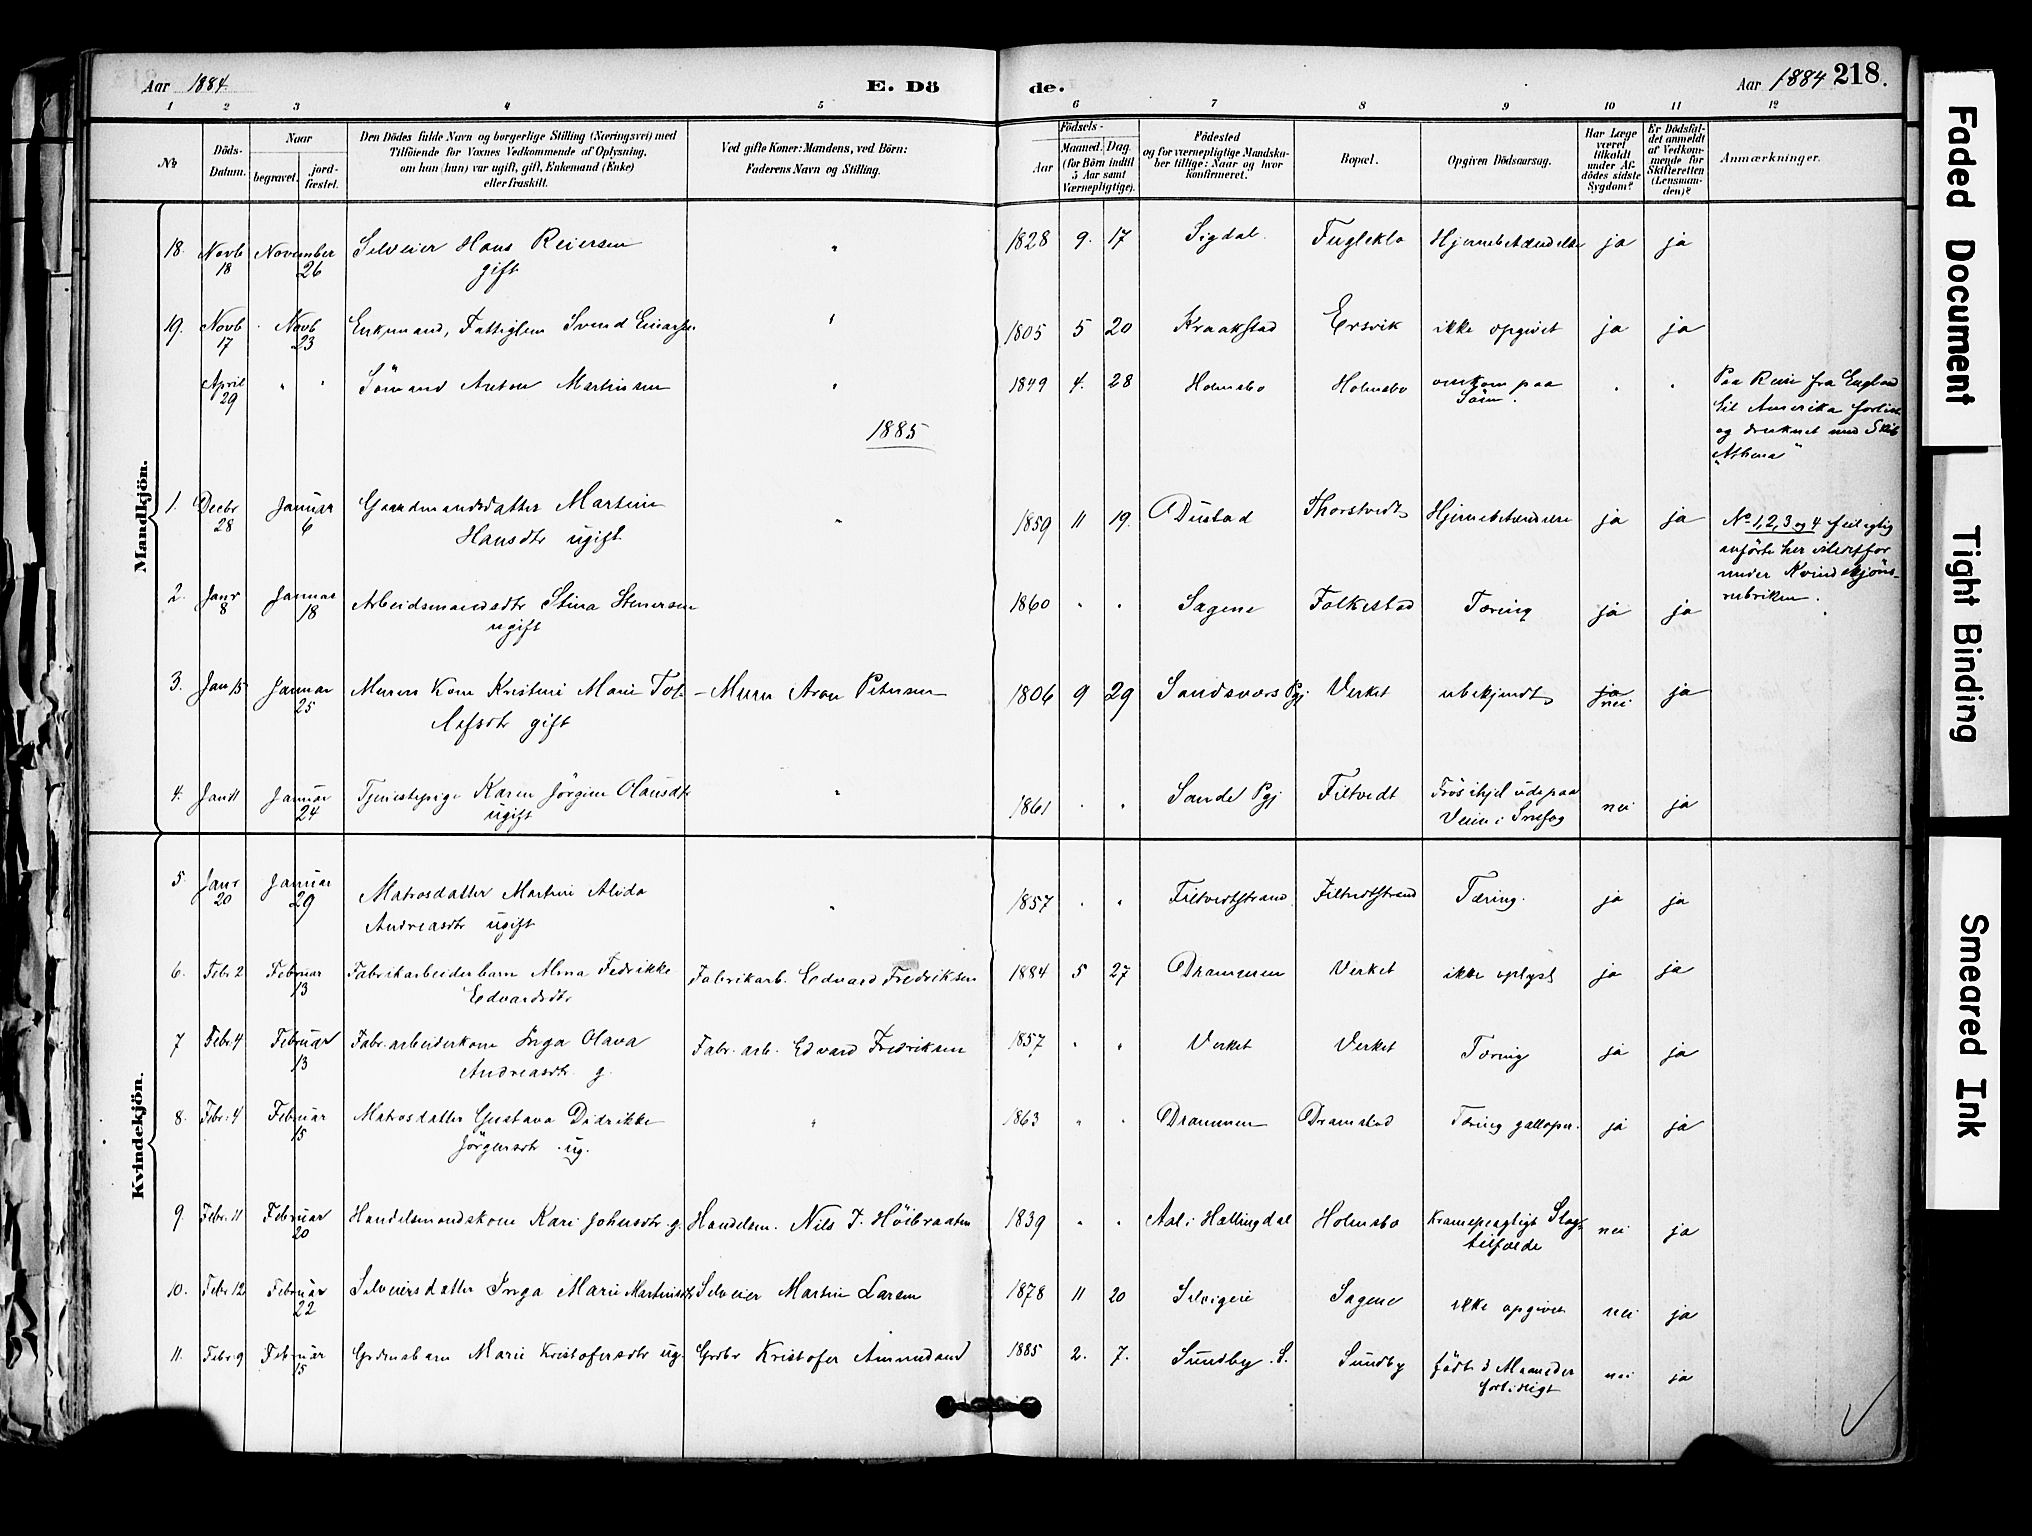 Aar 1884. E. Dö de. Aar 1884 218.
1 2 3 4 5 6 7 8 9 10 11 12
No
Döds-Datum.
Naar begravet. jordfæstet.
Den Dödes fulde Navn og borgerlige Stilling (Næringsvei) med
Tilföiende for Voxnes Vedkommende af Oplysning,
om han (hun) var ugift, gift, Enkemand (Enke)
eller fraskilt.
Ved gifte Koner: Mandens, ved Börn:
Faderens Navn og Stilling.
Födsels-
Aar
Maaned. Dag.
(for Börn indtil
5 Aar samt
Værnepligtige).
Födested
og for værnepligtige Mandska-
ber tillige: Naar og hvor
konfirmeret.
Bopæl.
Opgiven Dödsaarsag.
Har Læge
været
tilkaldt
under Af-
dödes sidste
Sygdom?
Er Dödsfal-
det anmeldt
af Vedkom-
mende for
Skifteretten
(Lensman-
den)?
Anmærkninger.
Mandkjön.
18. Novb 18 November 26 Selveier Hans Reiersen " 1828 9. 17 Sigdal Fuglekla Hjernebetændelse ja ja
gift
19. Novb 17 Novb 23 Enkemand, Fattiglem Svend Einarsen " 1805 5 20 Kraakstad Ersvik ikke opgivet ja ja
April 29 " " Sömand Anton Martinsen " 1849 4. 28 Holmsbo Holmsbo omkom paa
Söen.
Paa Reise fra England
til Amerika forlist
og druknet med Skib
"Athena"
1885
1. Decbr 28 Januar 6 Gaardmandsdatter Martine " 1859 11 19. Dustad Thorstvedt Hjernebetændelse ja ja
Hansdtr ugift
No 1, 2, 3 og 4 feilagtig
anförte her istedetfor
under Kvindekjöns-
rubriken.
2. Janr 8 Januar 18 Arbeidsmandsdtr Stina Stenersen 1860 " " Sagene Folkestad Tæring ja ja
ugift
3. Jan 15 Januar 25 Murers Kone Kristine Marie Tol- Murer Aron Petersen 1806 9 29 Sandsværs Pgj Verket ubekjendt ja nei ja
lefsdtr gift
4. Jan 11 Januar 24 Tjenestepige Karen Jörgine Olausdtr " 1861 " " Sande Pgj Filtvedt Frös ihjel ude paa nei ja
ugift Veien i Snefog
Kvindekjön.
5. Janr 20 Januar 29 Matrosdatter Martine Alida " 1857 " " Filtvedtstrand Filtvedtstrand Tæring. ja ja
Andreasdtr ugift
6. Febr 2 Februar 13 Fabrikarbeiderbarn Alma Fedrikke Fabrikarb. Edvard Fredriksen 1884 5 27 Drammen Verket ikke oplyst ja ja
Edvardsdtr
7 Febr. 4 Februar 13 Fabr.arbeiderkone Inga Olava Fabr. arb. Edvard Fredriksen 1857 " " Verket Verket Tæring ja ja
Andreasdtr. g.
8. Febr. 4 Februar 15 Matrosdatter Gustava Didrikke " 1863 " " Drammen Dramstad Tæring galloper. ja ja
Jörgensdtr. ug.
9. Febr. 11 Februar 20 Handelsmandskone Kari Johnsdtr. g. Handelsm. Nils T. Höibraaten 1839 " " Aal i Hallingdal Holmsbo Krampeagtigt Slag- nei ja
tilfælde
10. Febr 12 Februar 22 Selveiersdatter Inga Marie Martinsdtr Selveier Martin Larsen 1878 11 20 Selvigeie Sagene ikke opgivet nei ja
11. Febr. 9 Februar 15 Grdmsbarn Marie Kristofersdtr ug. Grdbr Kristofer Amundsen 1885 2. 7. Sundby S. Sundby født 3 Maaneder nei ja
fortidligt
Faded Document
Tight Binding
Smeared Ink